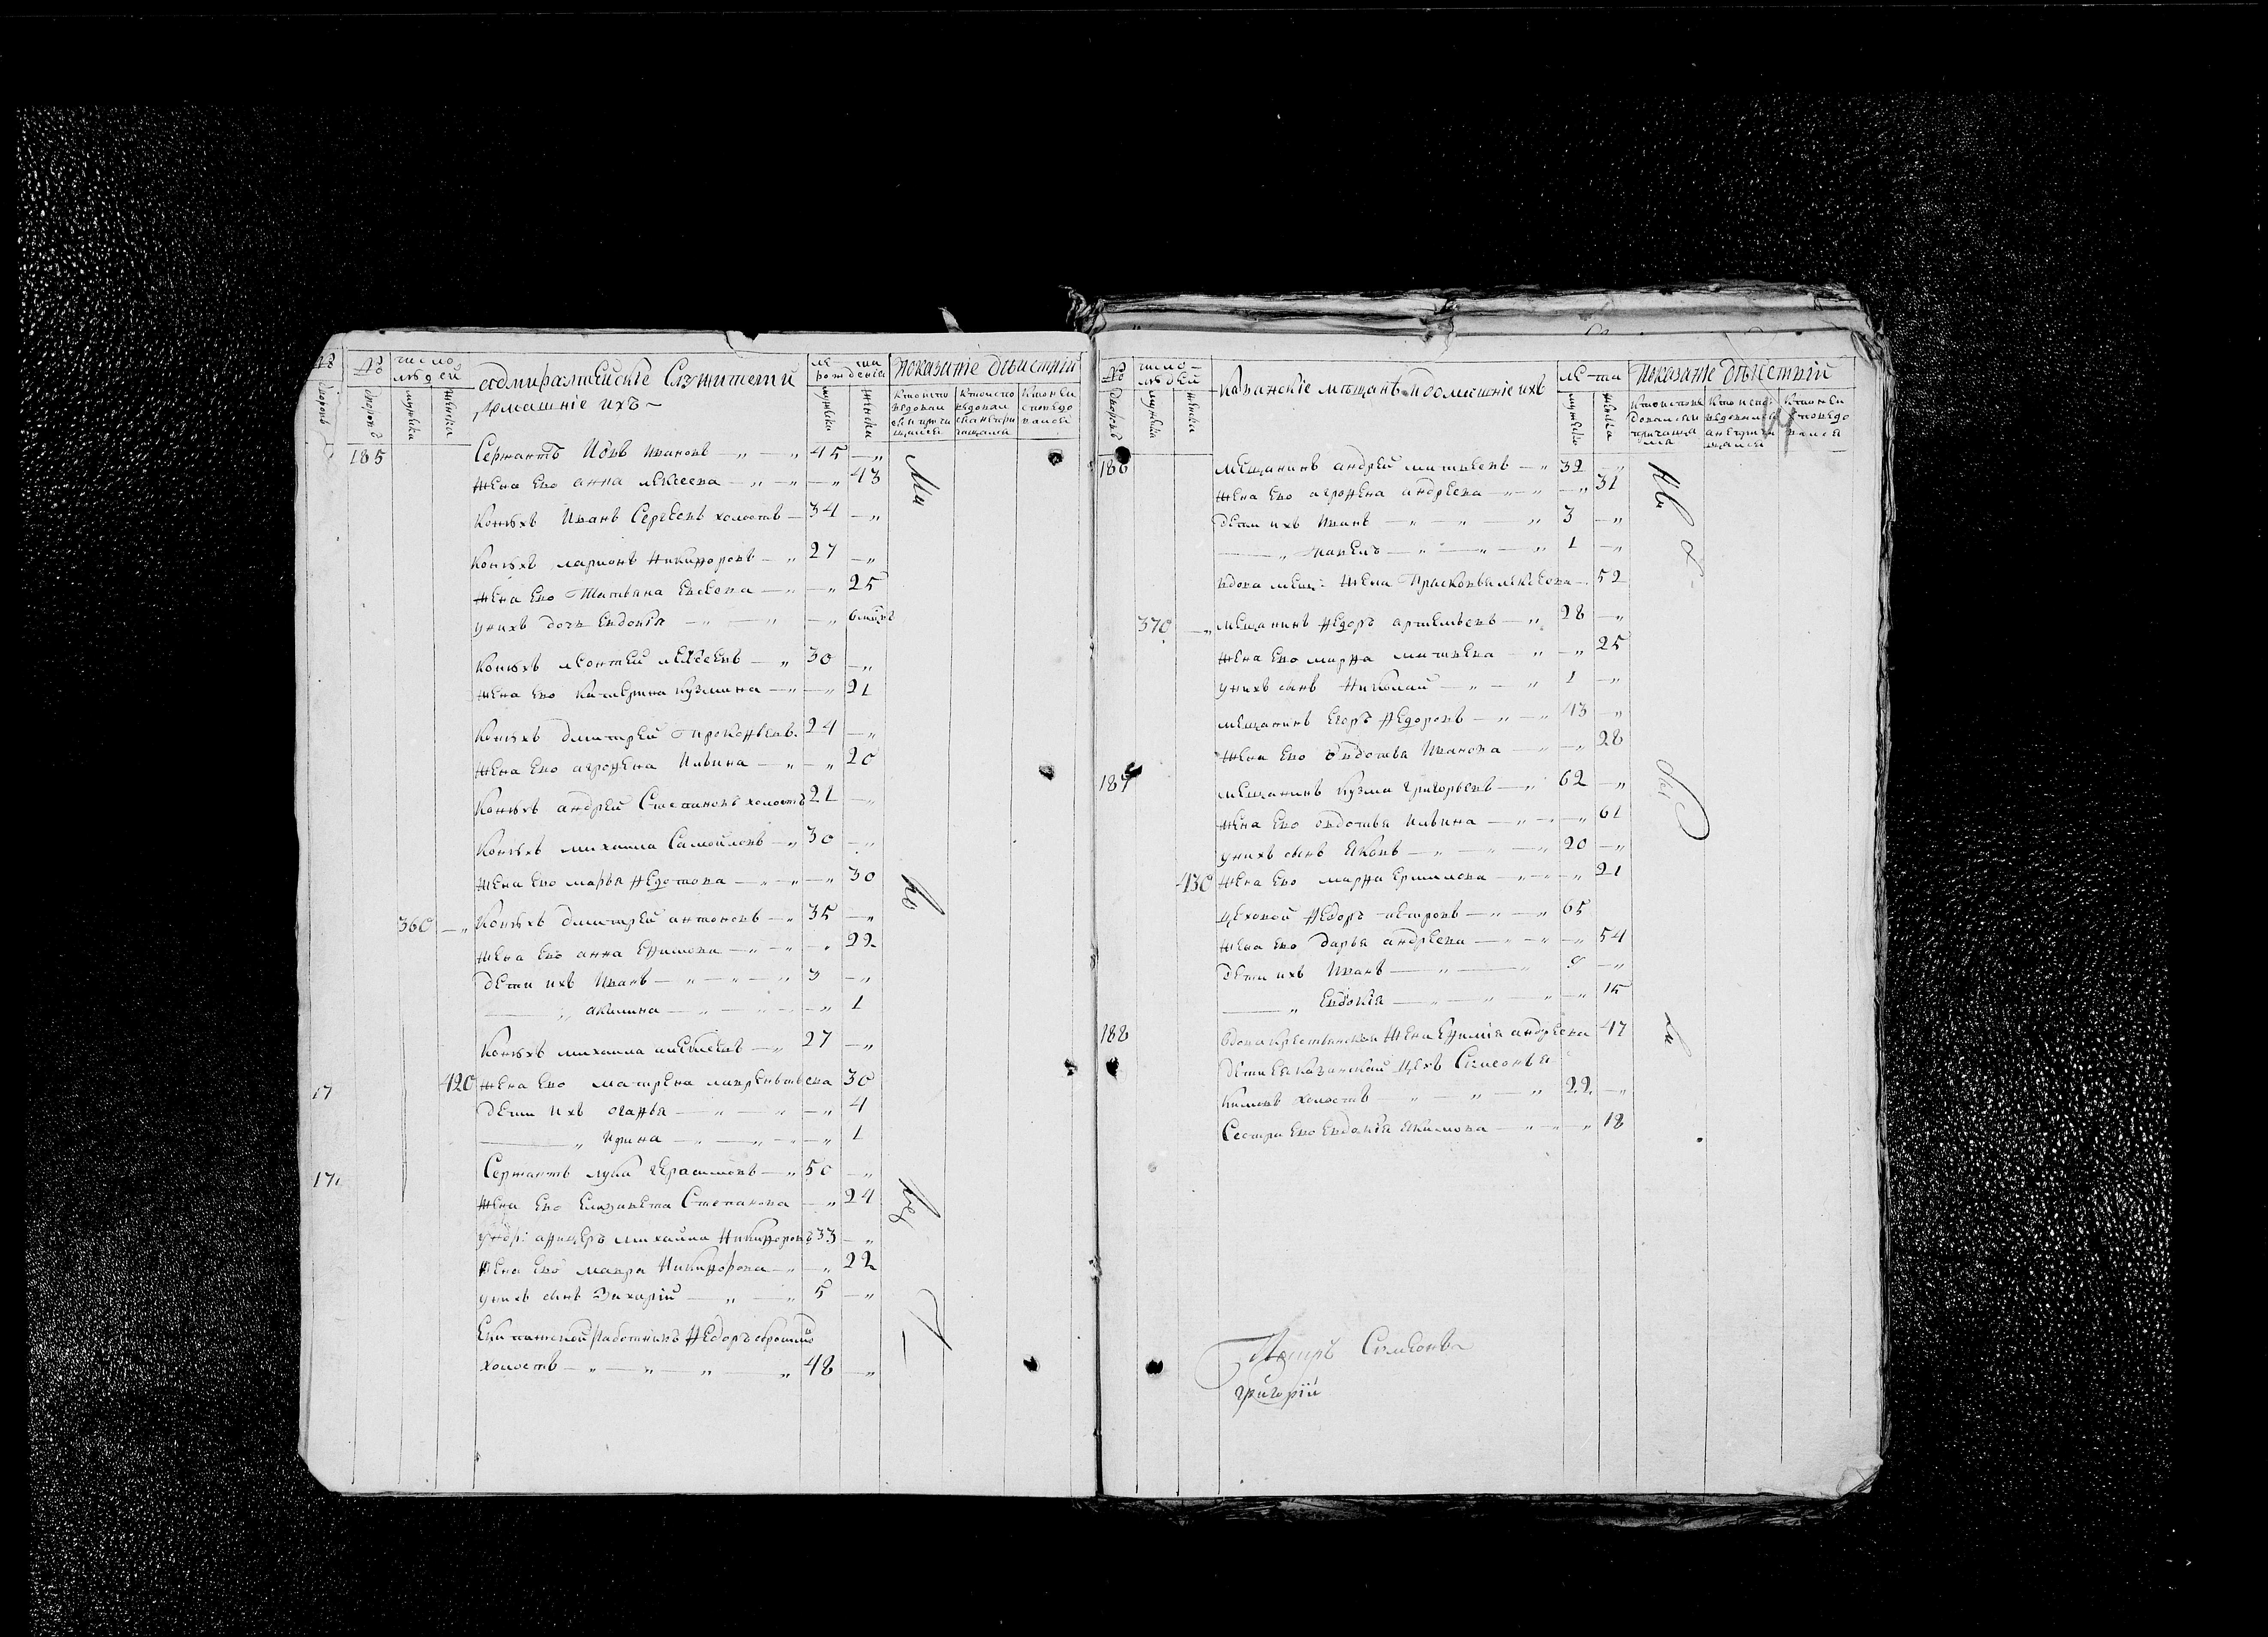 № дворовъ
число людей
мужеска
женска
адмиралтейскіе служители
домашніе ихъ
лета рожденіа
мужеска
женска
показаніе действій
185 Сержантъ Иовъ Ивановъ 45
жена ево анна алексеева 43
Конюхъ Иванъ Сергеевъ холостъ 34
Конюхъ ларионъ Никифоровъ 27
жена ево Татьяна Евсеева 25
у нихъ дочь Евдокѣя 6 мцовъ
Конюхъ леонтей алексеевъ 30
жена ево Катерина Кузмина 21
Конюхъ дмитрей Прокофьевъ 24
жена ево агрофена Ильина 20
Конюхъ андрей Степановъ холостъ 21
Конюхъ михаила Самойловъ 30
жена ево марья Федотова 30
360 Конюхъ дмитрей антоновъ 35
жена ево анна Ефимова 22
дети ихъ Иванъ 3
акилина 1
Конюхъ михаила алексеевъ 27
420 жена ево матрена лаврентьева 30
дети ихъ агафья 4
Ирина 1
Сержантъ лука герасимовъ 50
жена ево Елизавета Степанова 24
ундръ: афицеръ михаила Никифоровъ 33
жена ево мавра Никифорова 22
у нихъ сынъ Захарій 5
работникъ Федоръ
холостъ 48
№ дворовъ
число людей
мужеска
женска
казанскіе мещанъ и домашніе ихъ
лета
мужеска
женска
показаніе действій
186 мещанинъ андрей матвеевъ 32
жена ево агрофена андреева 31
дети ихъ Иванъ 3
Павелъ 1
вдова мещ: жена Прасковья алексеева 52
370 мещанинъ Федоръ артемьевъ 28
жена ево марфа матвеева 25
у нихъ сынъ Николай 1
мещанинъ Егоръ Федоровъ 43
жена ево овдотья Иванова 28
187 мещанинъ Кузма григорьевъ 62
жена ево овдотья Ильина 61
у нихъ сынъ Яковъ 20
430 жена ево марфа Ермилова 21
цеховой Федоръ петровъ 65
жена ево дарья андреева 54
дети ихъ Иванъ 9
Евдокѣя 15
188 вдова крестьянская жена Ефимія андреева 47
дети ея казанской цехъ
холостъ 22
Сестра ево Евдокѣя Якимова 18
Петръ Симеоновъ
григорій